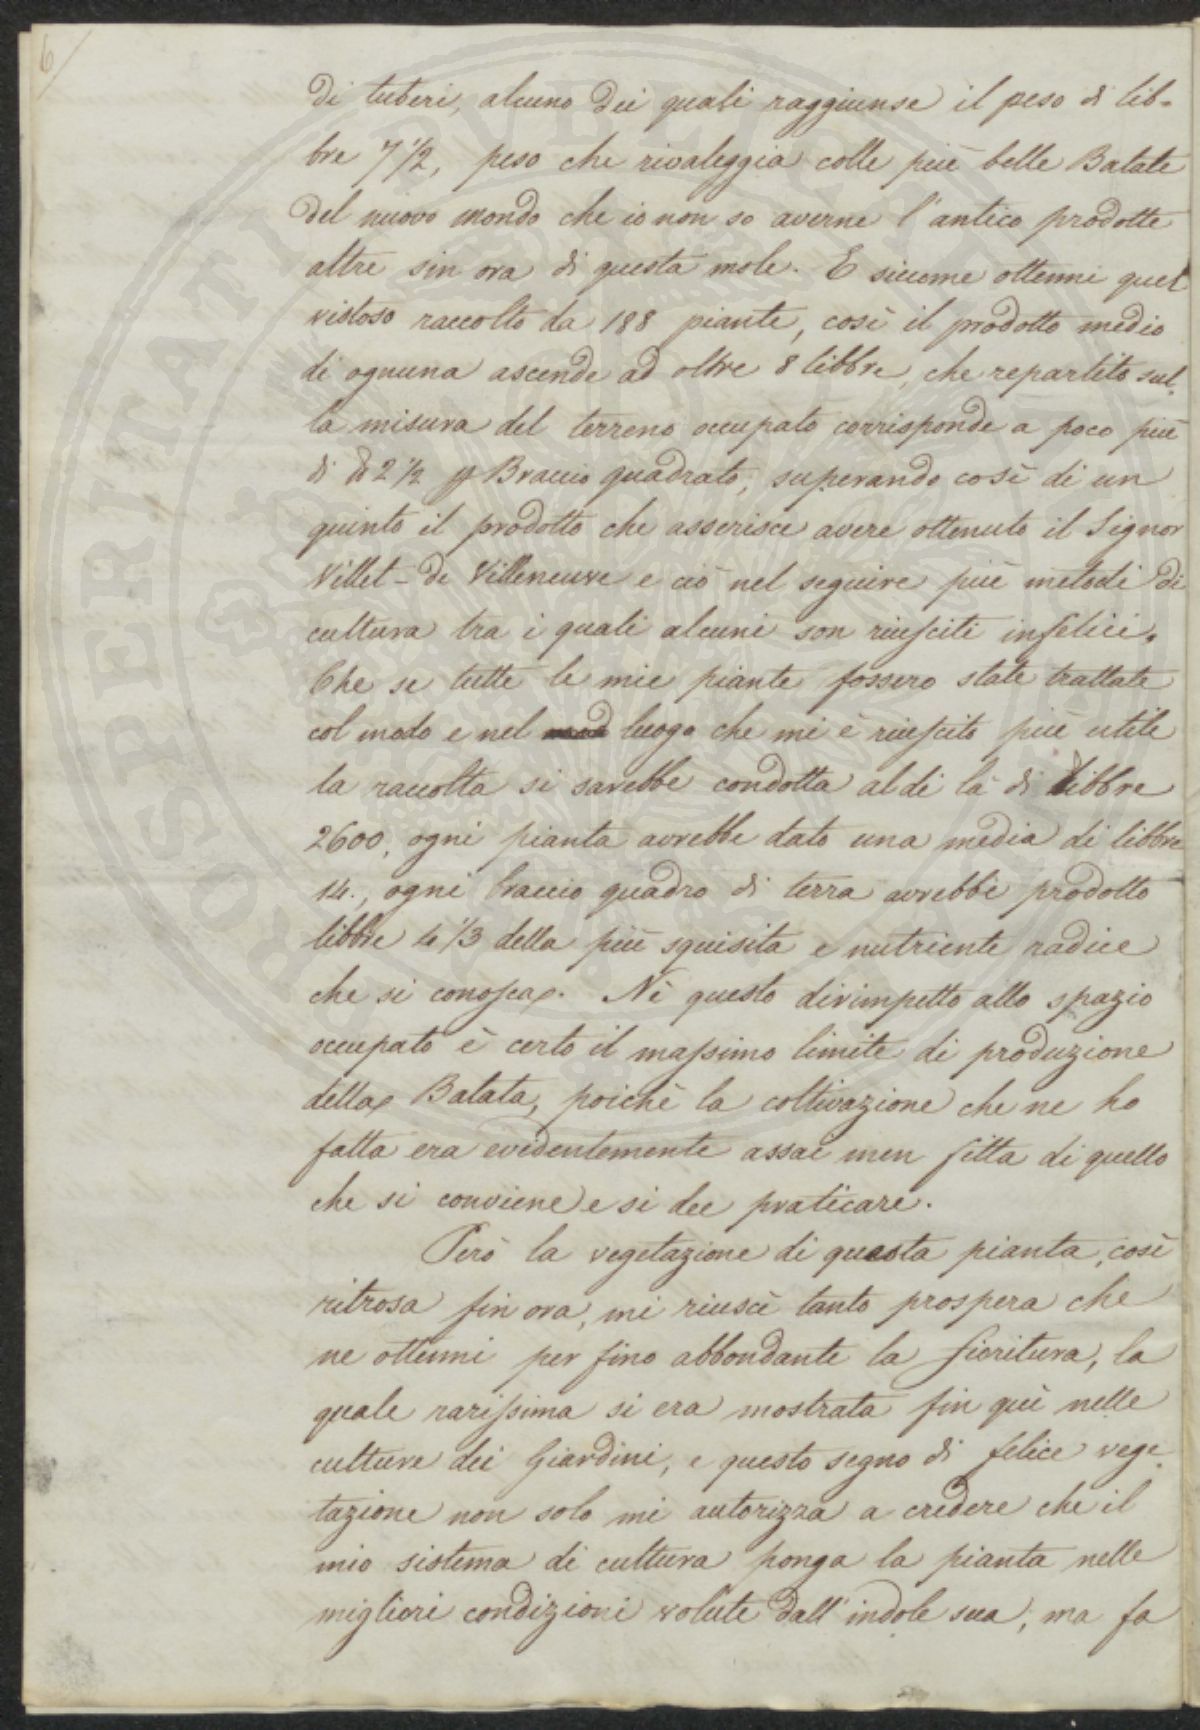 6
di tuberi, alcuno dei quali raggiunse il peso di lib-
bre 7 1/2, peso che rivaleggia colle più belle Batate
del nuovo mondo che io non so averne l'antico prodotte
altre sin ora di questa mole. E siccome ottenni quel
vistoso raccolto da 188 piante, così il prodotto medio
di ognuna ascende ad oltre 8 libbre, che repartito sul-
la misura del terreno occupato corrisponde a poco più
di 2 1/2 Braccio quadrato, superando così di un
quinto il prodotto che asserisce avere ottenuto il Signor
Villet-de Villeneuve e ciò nel seguire più metodi di
cultura tra i quali alcuni son riusciti infelici.
Che se tutte le mie piante fossero state trattate
col modo e nel luogo che mi è riuscito più utile
la raccolta si sarebbe condotta al di là di libbre
2600, ogni pianta avrebbe dato una media di libbre
14., ogni braccio quadro di terra avrebbe prodotto
libbre 4 1/3 della più squisita e nutriente radice
che si conosca. Nè questo dirimpetto allo spazio
occupato è certo il massimo limite di produzione
della Batata, poichè la coltivazione che ne ho
fatta era evidentemente assai men fitta di quello
che si conviene e si dee praticare.
Però la vegetazione di questa pianta, così
ritrosa fin ora, mi riuscì tanto prospera che
ne ottenni per fino abbondante la fioritura, la
quale rarissima si era mostrata fin quì nelle
culture dei Giardini, e questo segno di felice vege-
tazione non solo mi autorizza a credere che il
mio sistema di cultura ponga la pianta nelle
migliori condizioni volute dall'indole sua, ma fa
PROSPERITATI PVBLICAE